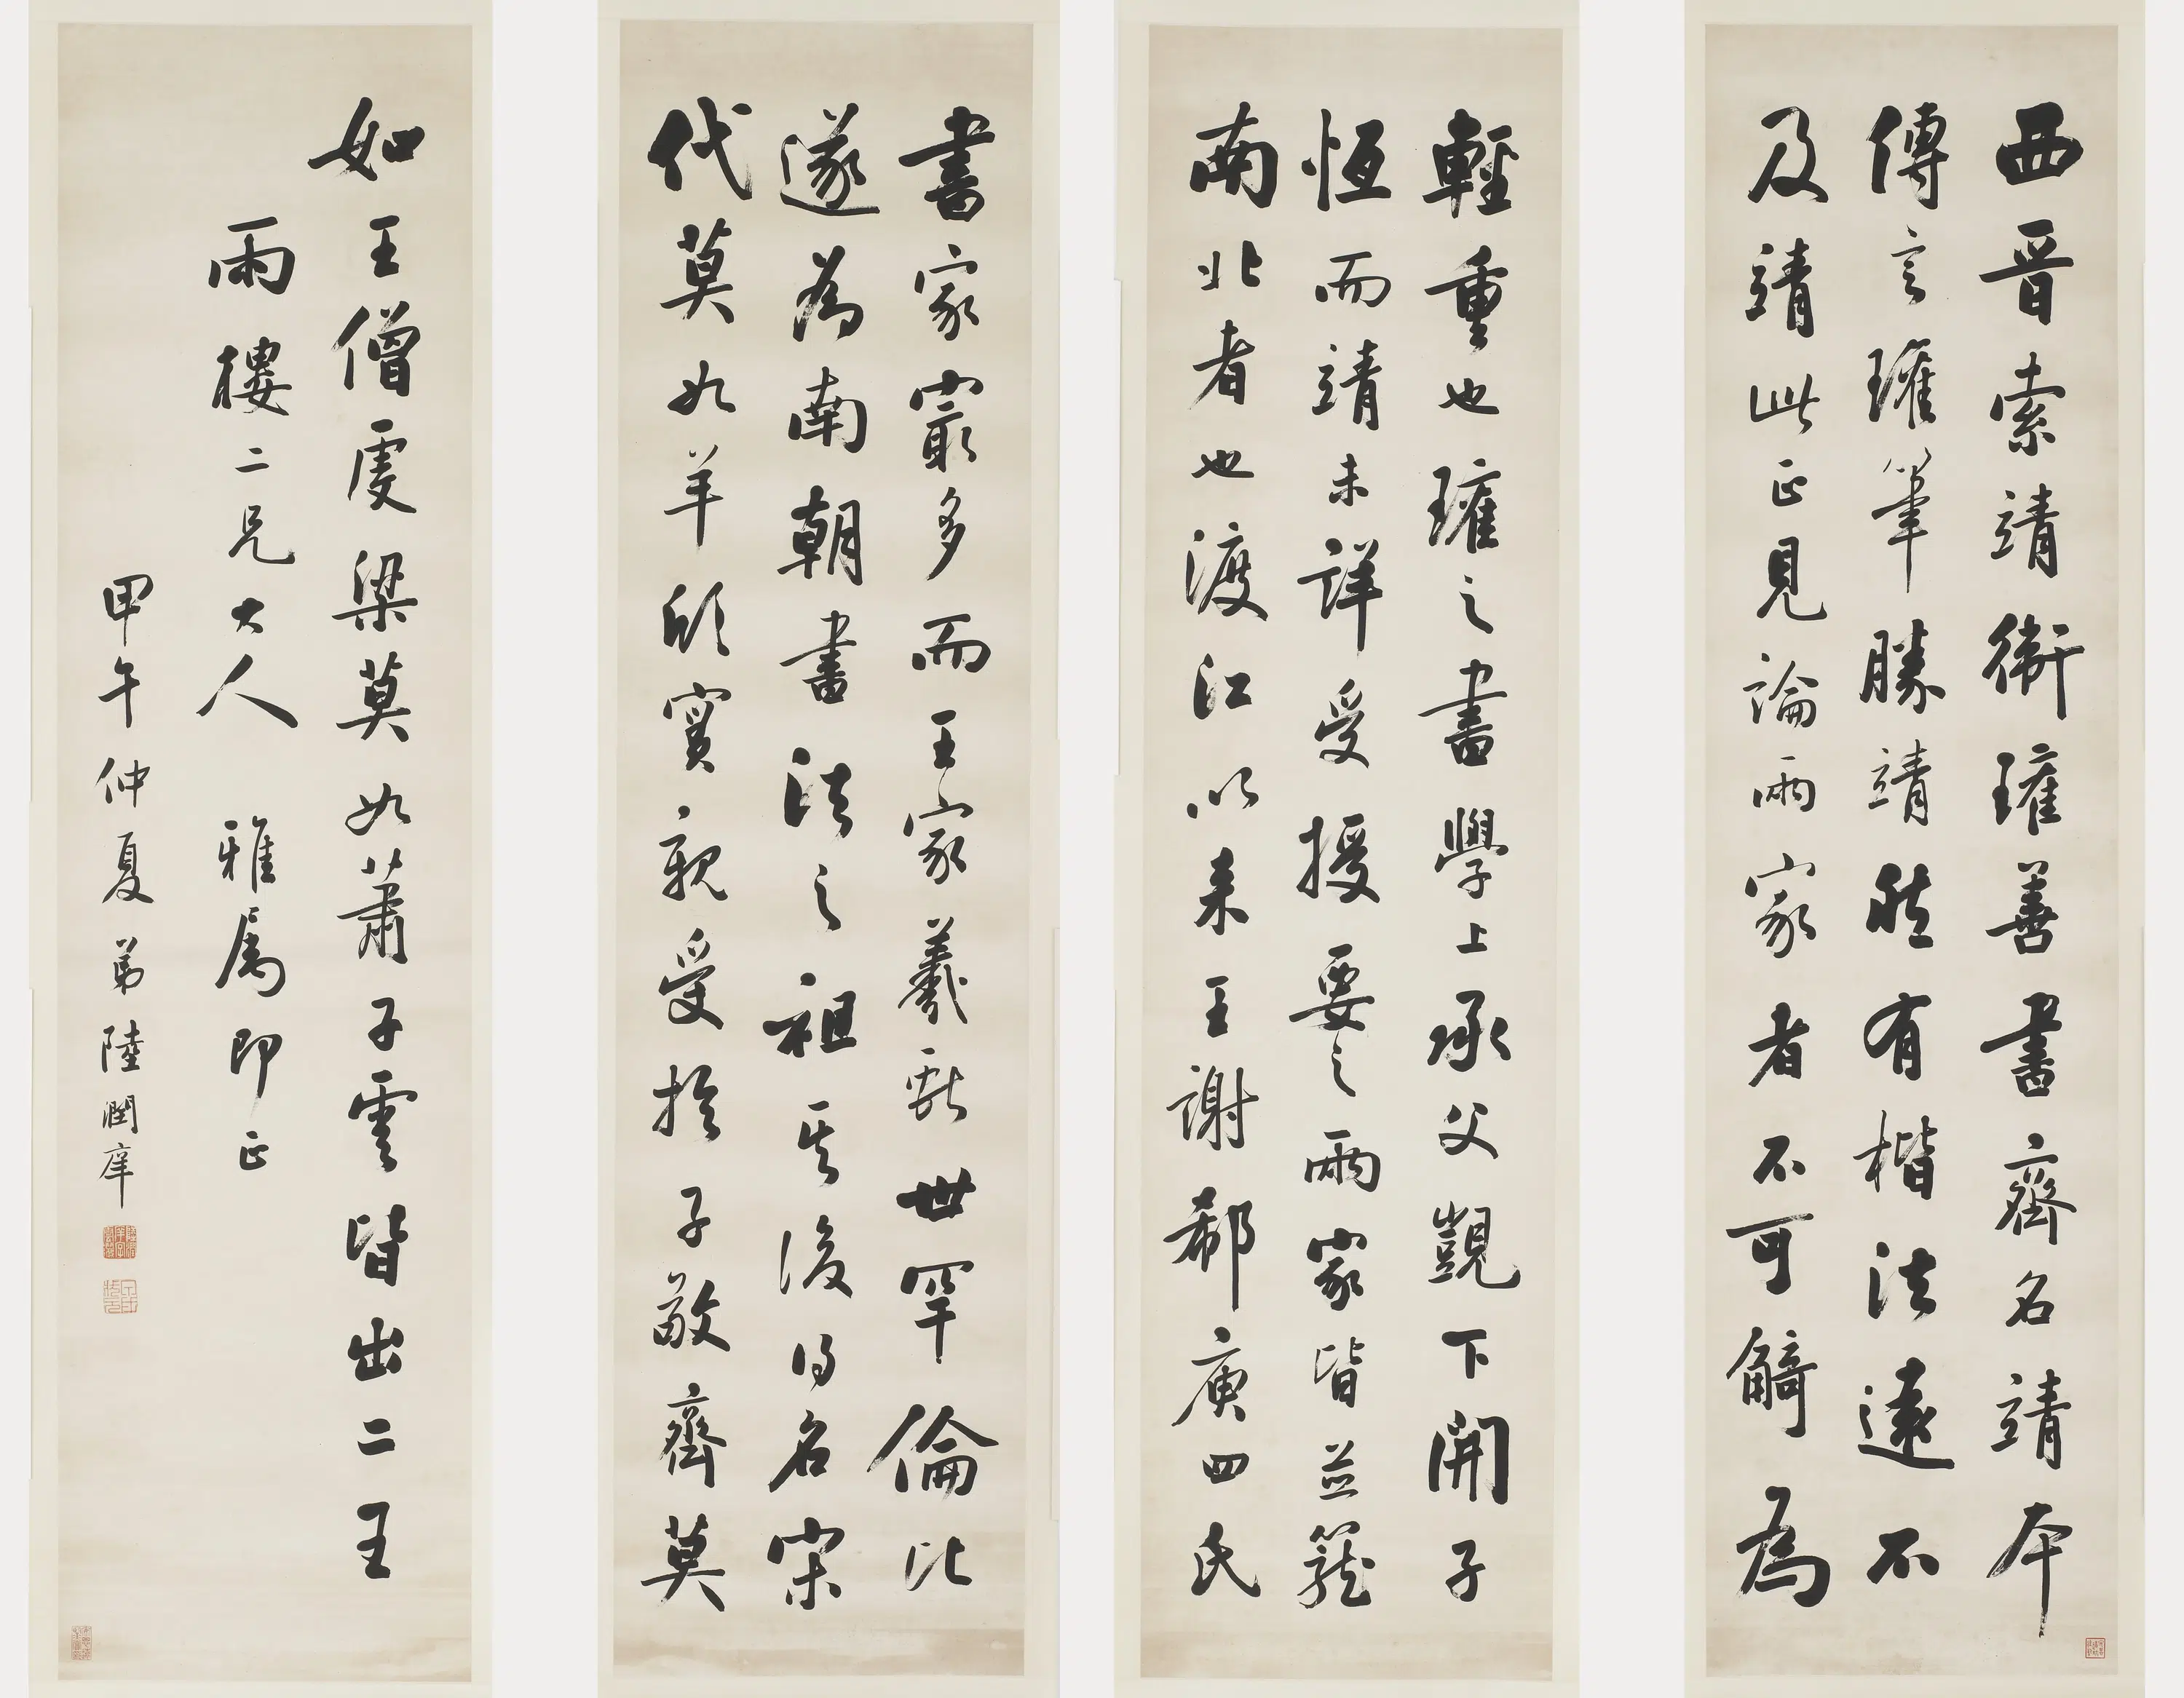 西晉索靖衛瓘善書齊名靖本
傳言瓘筆勝靖然有楷法遠不
及靖此正見論兩家者不可觭為
輕重也瓘之書學上承父覬下開子
恆而靖未詳受授要之兩家皆並籠
南北者也渡江以來王謝郗庾四氏
書家最多而王家羲獻世罕倫比
遂為南朝書法之祖其後得名宋
代莫如羊欣實親受於子敬齊莫
如王僧虔梁莫如蕭子雲皆出二王
雨樓二兄大人 雅屬即正
甲午仲夏弟陸潤庠